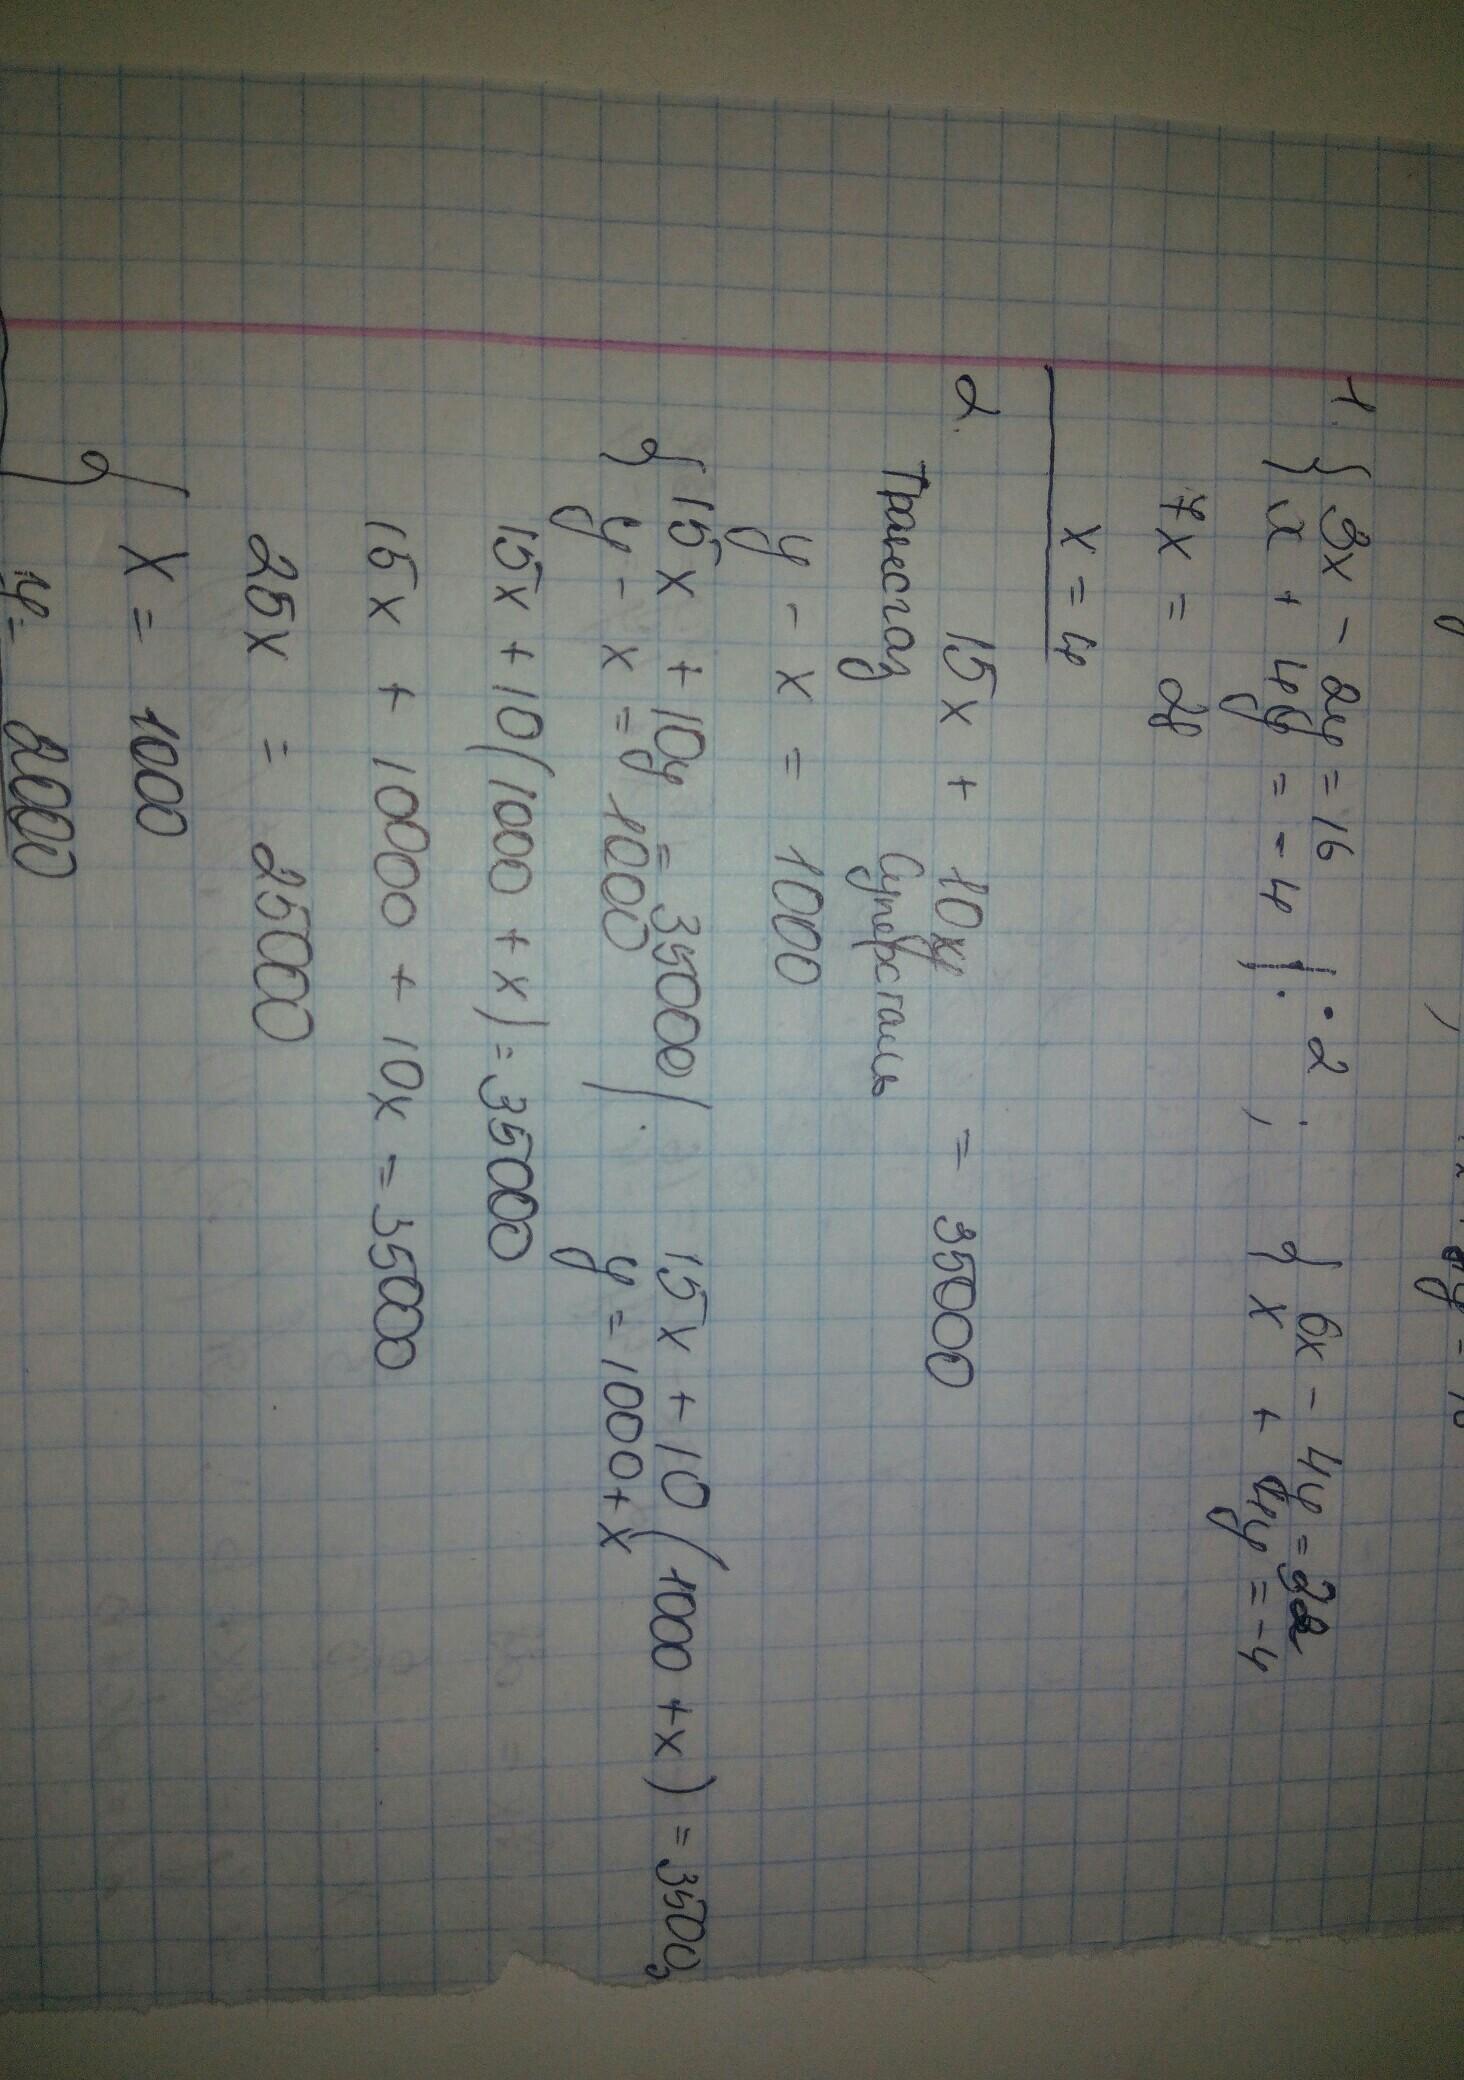 1. { 3x - 2y = 16 | · 2 ; { 6x - 4y = 32
x + 4y = -4 | · x + 4y = -4
7x = 28
x = 4
2. 15x + 10y = 35000
Трансгаз Суперсталь
y - x = 1000
{ 15x + 10y = 35000 | 15x + 10(1000 + x) = 35000
y - x = 1000 | · y = 1000 + x
15x + 10(1000 + x) = 35000
15x + 10000 + 10x = 35000
25x = 25000
{ x = 1000
y = 2000